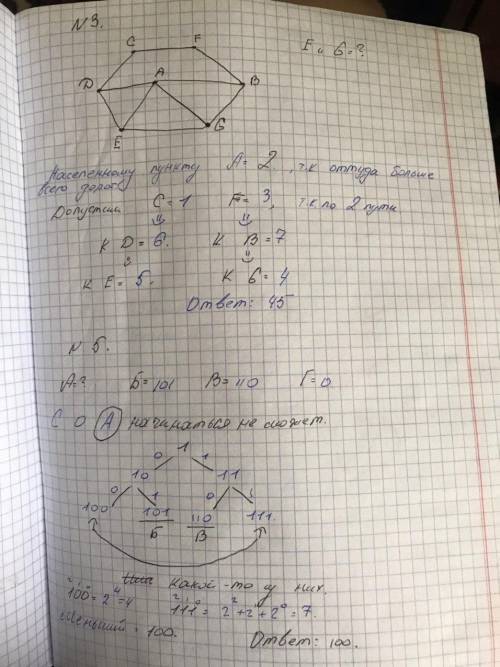 N 3.
C F
E и G = ?
D A B
E G
Населенному пункту A = 2, т.к оттуда больше
всего дорог
Допустим C = 1 F = 3, т.к по 2 пути
к D = 6. к B = 7
к E = 5. к G = 4
Ответ: 45
N 5.
A = ? Б = 101 В = 110 Г = 0
С 0 А начинаться не может.
1
0 1
10 11
0 1 0 1
100 101 110 111
Б В
какое-то у них.
100 = 2 = 4
111 = 2² + 2¹ + 2⁰ = 7.
Меньший - 100.
Ответ: 100.